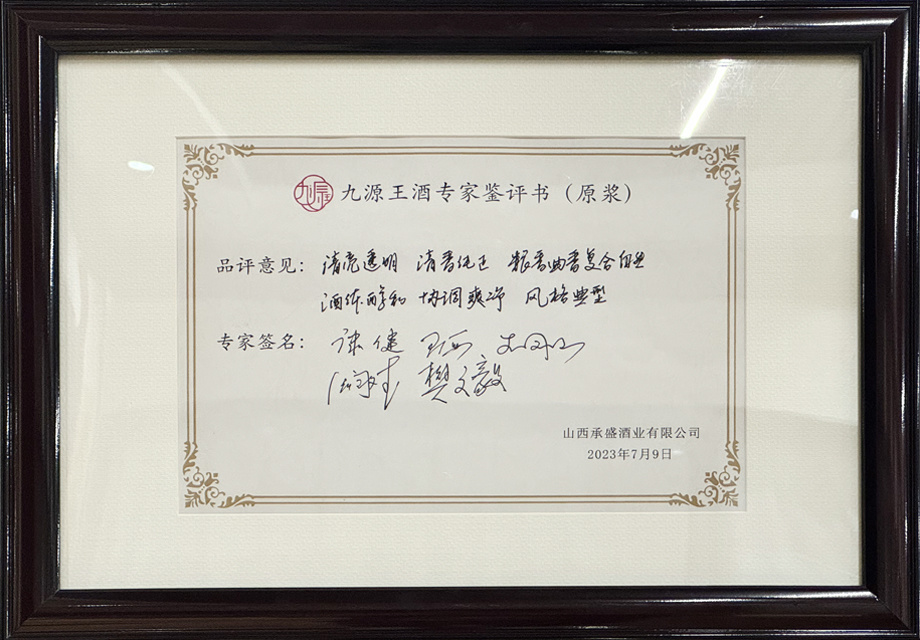 九源王 九源王酒专家鉴评书（原浆）
品评意见： 清亮透明 清香纯正 粮香曲香复合自然
酒体醇和 协调爽净 风格典型
专家签名：
樊文毅
山西承盛酒业有限公司
2023年7月9日